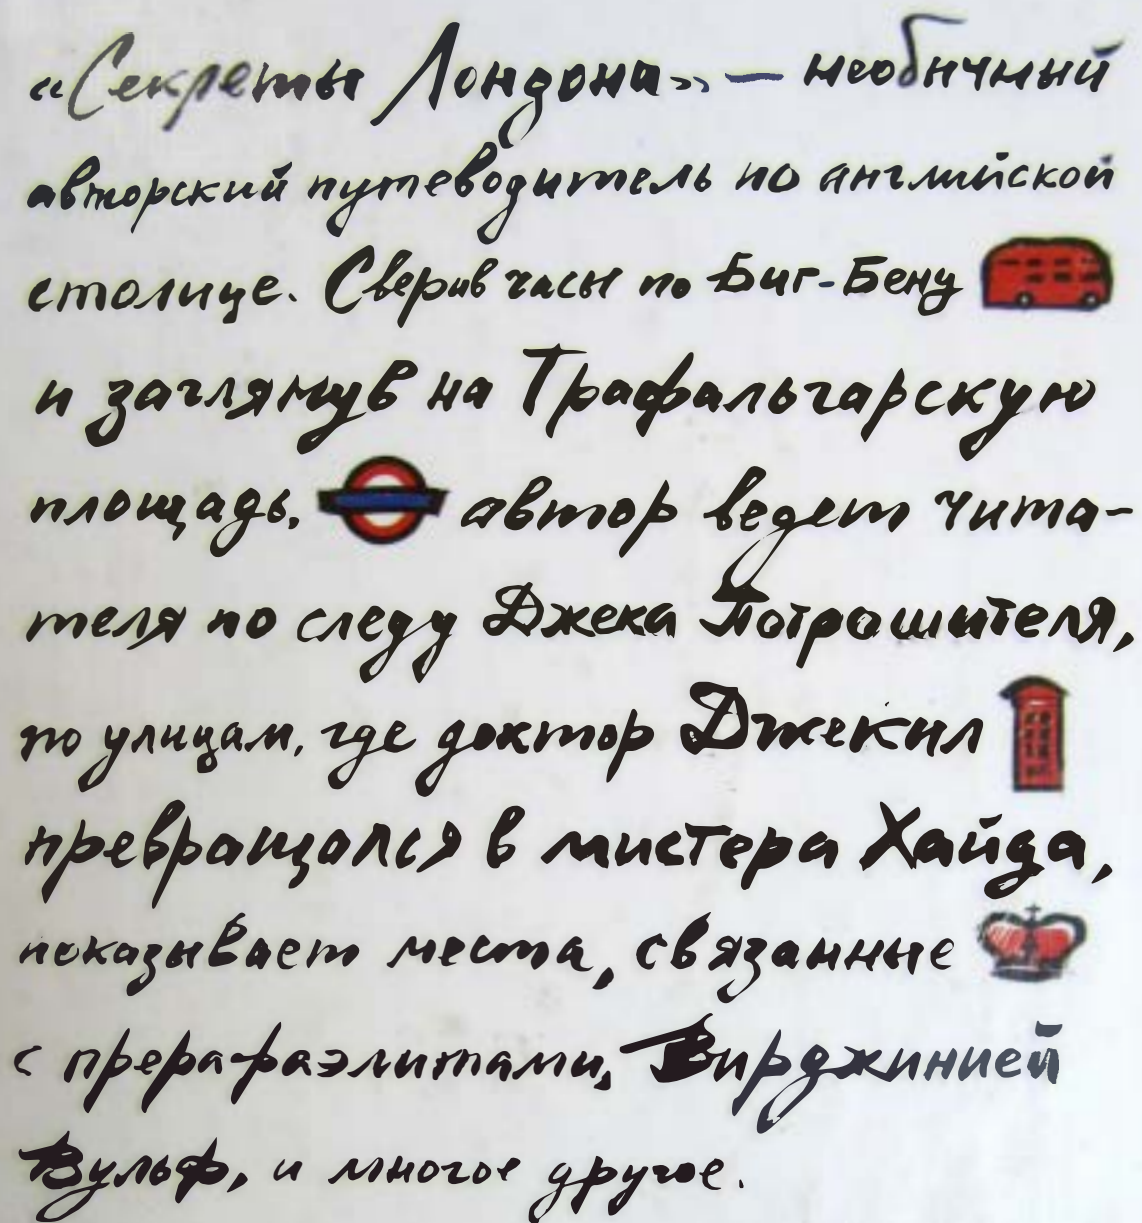 «Секреты Лондона» — необычный
авторский путеводитель по английской
столице. Сверив часы по Биг-Бену
и заглянув на Трафальгарскую
площадь, автор ведет чита-
теля по следу Джека Потрошителя,
по улицам, где доктор Джекил
превращался в мистера Хайда,
показывает места, связанные
с прерафаэлитами, Вирджинией
Вульф, и многое другое.